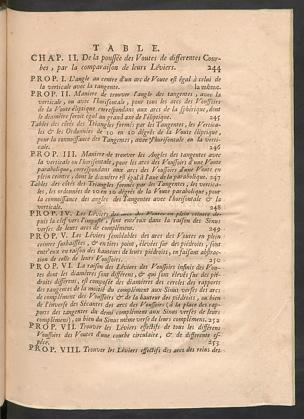 TABLE.
CHAP. II. De la poussée des Voutes de differentes Courbes, par la comparaison de leurs Léviers. 244
PROP. I. L'angle au centre d'un arc de Voute est égal à celui de
la verticale avec la tangente. la même.
PROP. II. Maniere de trouver l'angle des tangentes, avec la
verticale, ou avec l'horisontale, pour tous les arcs des Voussoirs
de la Voute éliptique correspondans aux arcs de la sphérique, dont
le diametre seroit égal au grand axe de l'éliptique. 245
Tables des côtés des Triangles formés par les Tangentes, les Verticales
& les Ordonnées de 10 en 10 dégrés de la Voute éliptique,
pour la connoissance des Tangentes, avec l'horisontale ou la verticale. 246
PROP. III. Maniere de trouver les angles des Tangentes avec la
verticale ou l'horisontale, pour les arcs des Voussoirs d'une Voute
parabolique, correspondans aux arcs des Voussoirs d'une Voute en
plein ceintre, dont le diametre est égal à l'axe de la parabolique. 247
Tables des côtés des Triangles formés par les Tangentes, les verticales,
les ordonnées de 10 en 10 dégrés de la Voute parabolique, pour
la connoissance des angles des Tangentes avec l'horisontale & la
verticale. 248
PROP. IV. Les Léviers des arcs des Voutes en plein ceintre depuis
la clef vers l'imposte, sont entr'eux dans la raison des Sinus
verses de leurs arcs de complément. 249
PROP. V. Les Léviers semblables des arcs des Voutes en plein
ceintre surhaussées, & en tiers point, élevées sur des piédroits, sont
entr'eux en raison des hauteurs de leurs piédroits, en faisant abstraction
de celle de leurs Voussoirs. 250
PROP. VI. La raison des Léviers des Voussoirs infinis des Voutes
dont les diametres sont differens, & qui sont élevés sur des piédroits
differens, est composée des diametres des cercles des rapports
des tangentes de la moitié du complément aux Sinus verses des arcs
de complément des Voussoirs & de la hauteur des piédroits, ou bien
de l'énergie des Sécantes des arcs des Voussoirs (à la place des rapports
des tangentes du demi complément aux Sinus verses de leurs
complémens) ou bien du Sinus même verse de leurs complémens. 252
PROP. VII. Trouver les Léviers effectifs de tous les différens
Voussoirs des Voutes d'une courbe circulaire, & de differente espéce. 253
PROP. VIII. Trouver les Léviers effectifs des arcs des reins des